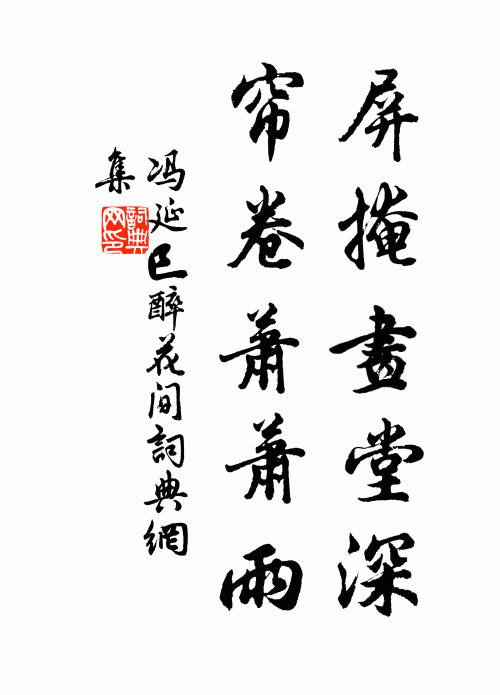 屏掩畫堂深
帘卷蕭蕭雨
冯延巳醉花间詞典網
集
詞典网印